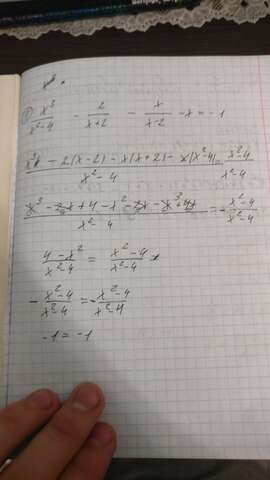 1) x³/(x²-4) - 2/(x+2) - x/(x-2) - x = -1
(x³ - 2(x-2) - x(x+2) - x(x²-4))/(x²-4) = (x²-4)/(x²-4)
(x³ - 2x + 4 - x² - 2x - x³ + 4x)/(x²-4) = -(x²-4)/(x²-4)
(4-x²)/(x²-4) = (x²-4)/(x²-4)
-(x²-4)/(x²-4) = -(x²-4)/(x²-4)
-1 = -1